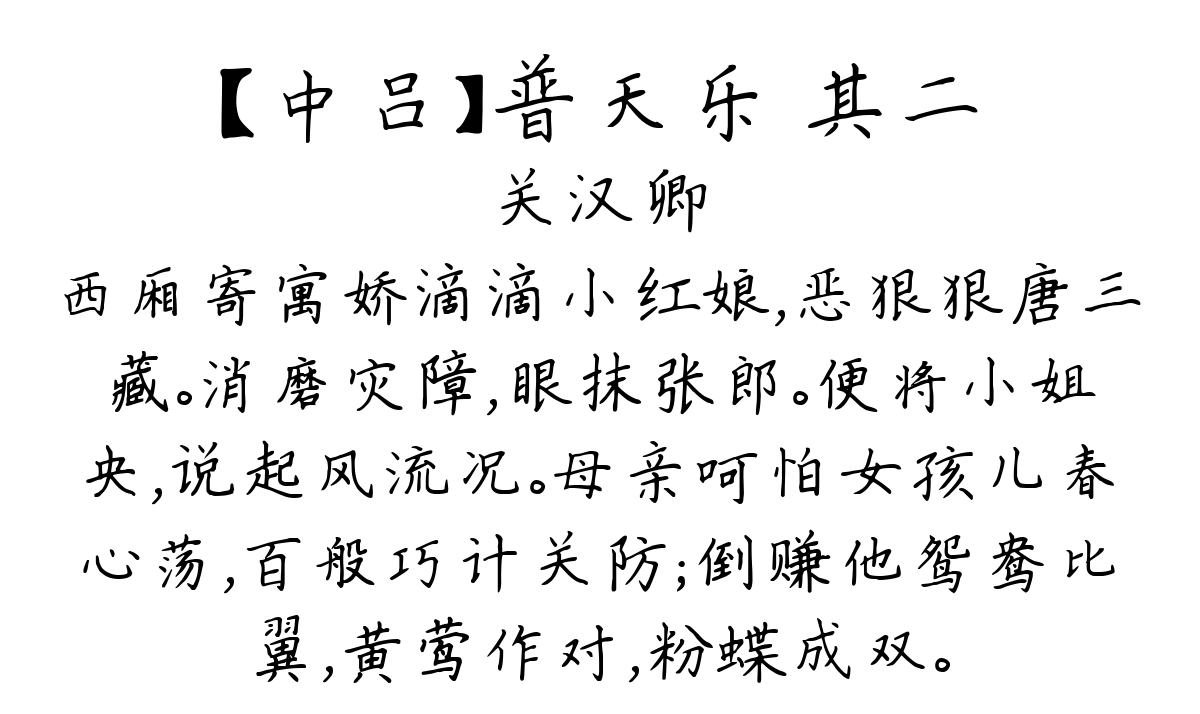 【中吕】普天乐 其二
关汉卿
西厢寄寓娇滴滴小红娘,恶狠狠唐三
藏。消磨灾障,眼抹张郎。便将小姐
央,说起风流况。母亲呵怕女孩儿春
心荡,百般巧计关防;倒赚他鸳鸯比
翼,黄莺作对,粉蝶成双。